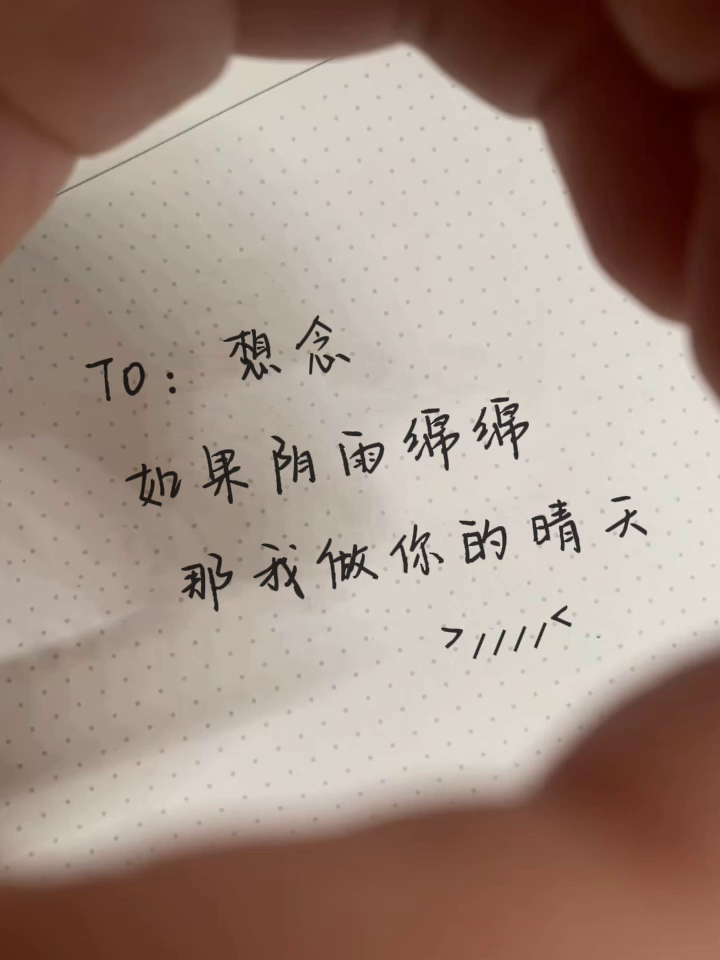 TO: 想念
如果阴雨绵绵
那我做你的晴天
>////<